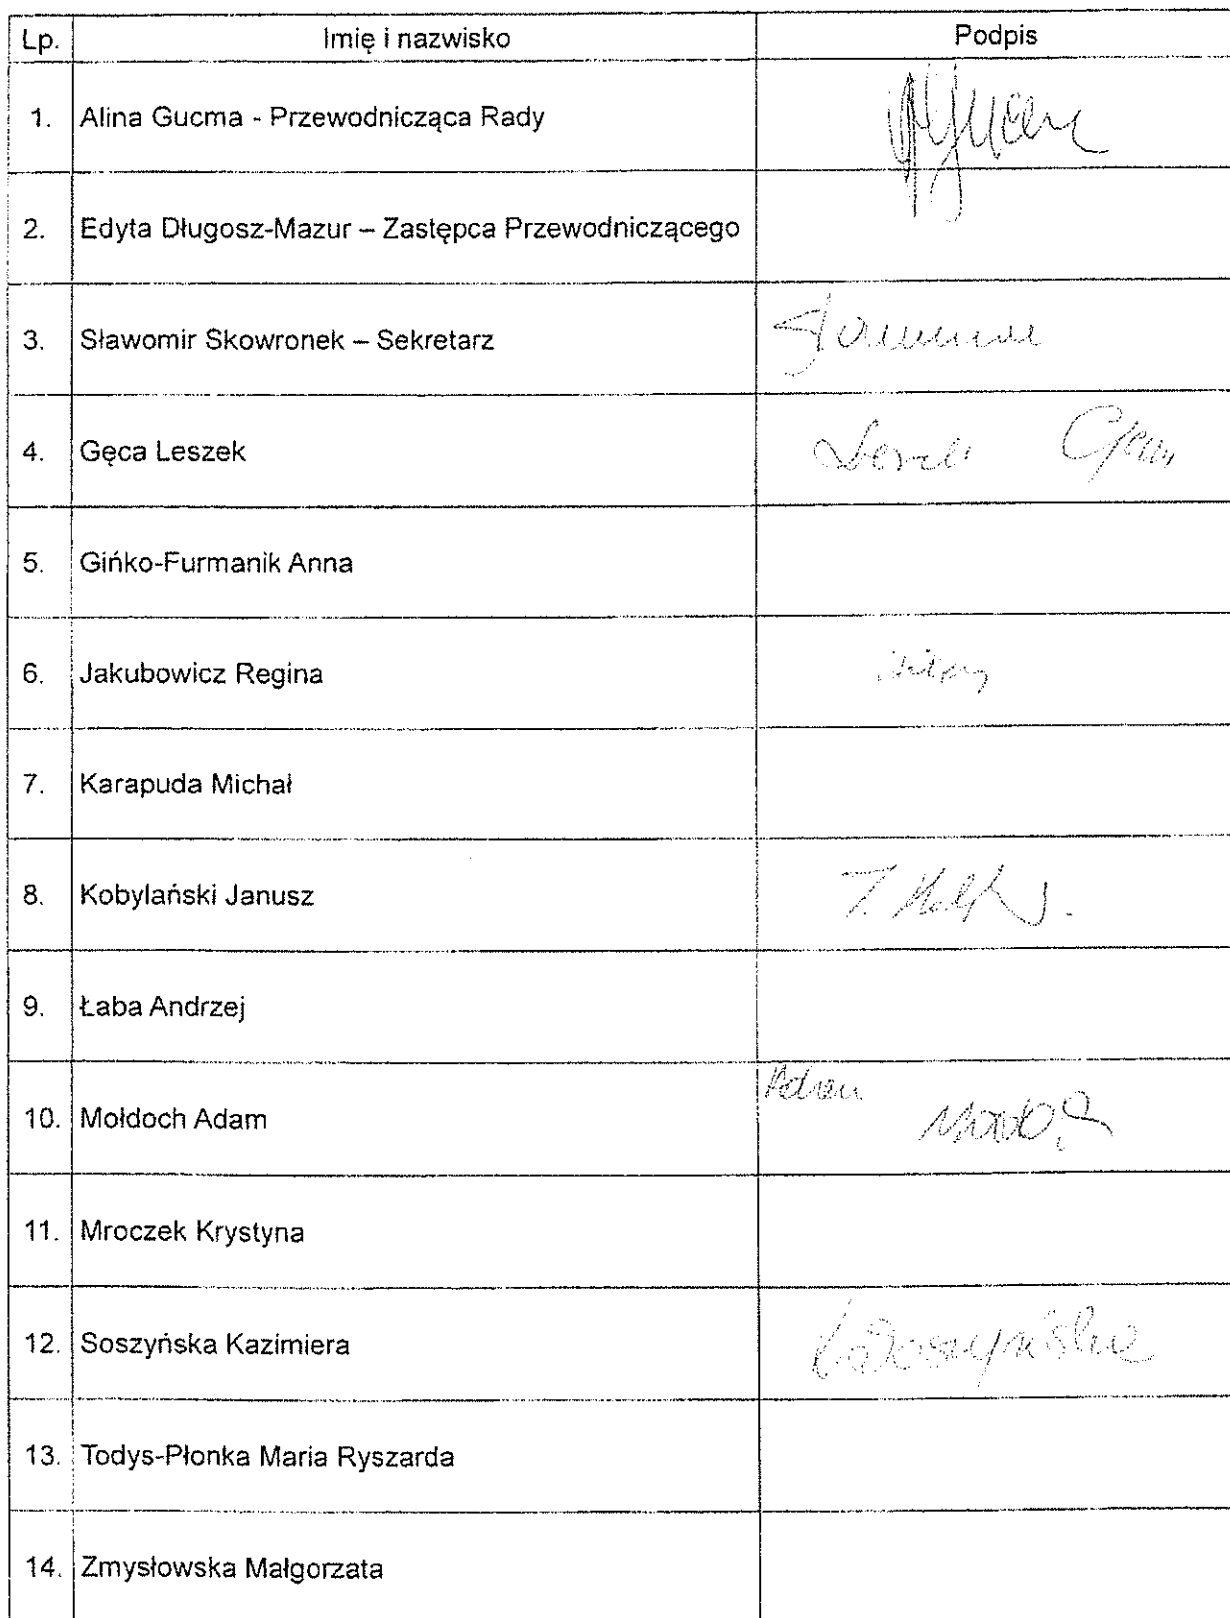 Lp. Imię i nazwisko Podpis
1. Alina Gucma - Przewodnicząca Rady
2. Edyta Długosz-Mazur – Zastępca Przewodniczącego
3. Sławomir Skowronek – Sekretarz
4. Gęca Leszek
5. Gińko-Furmanik Anna
6. Jakubowicz Regina
7. Karapuda Michał
8. Kobylański Janusz
9. Łaba Andrzej
10. Mołdoch Adam Adam
11. Mroczek Krystyna
12. Soszyńska Kazimiera KSoszyńska
13. Todys-Płonka Maria Ryszarda
14. Zmysłowska Małgorzata